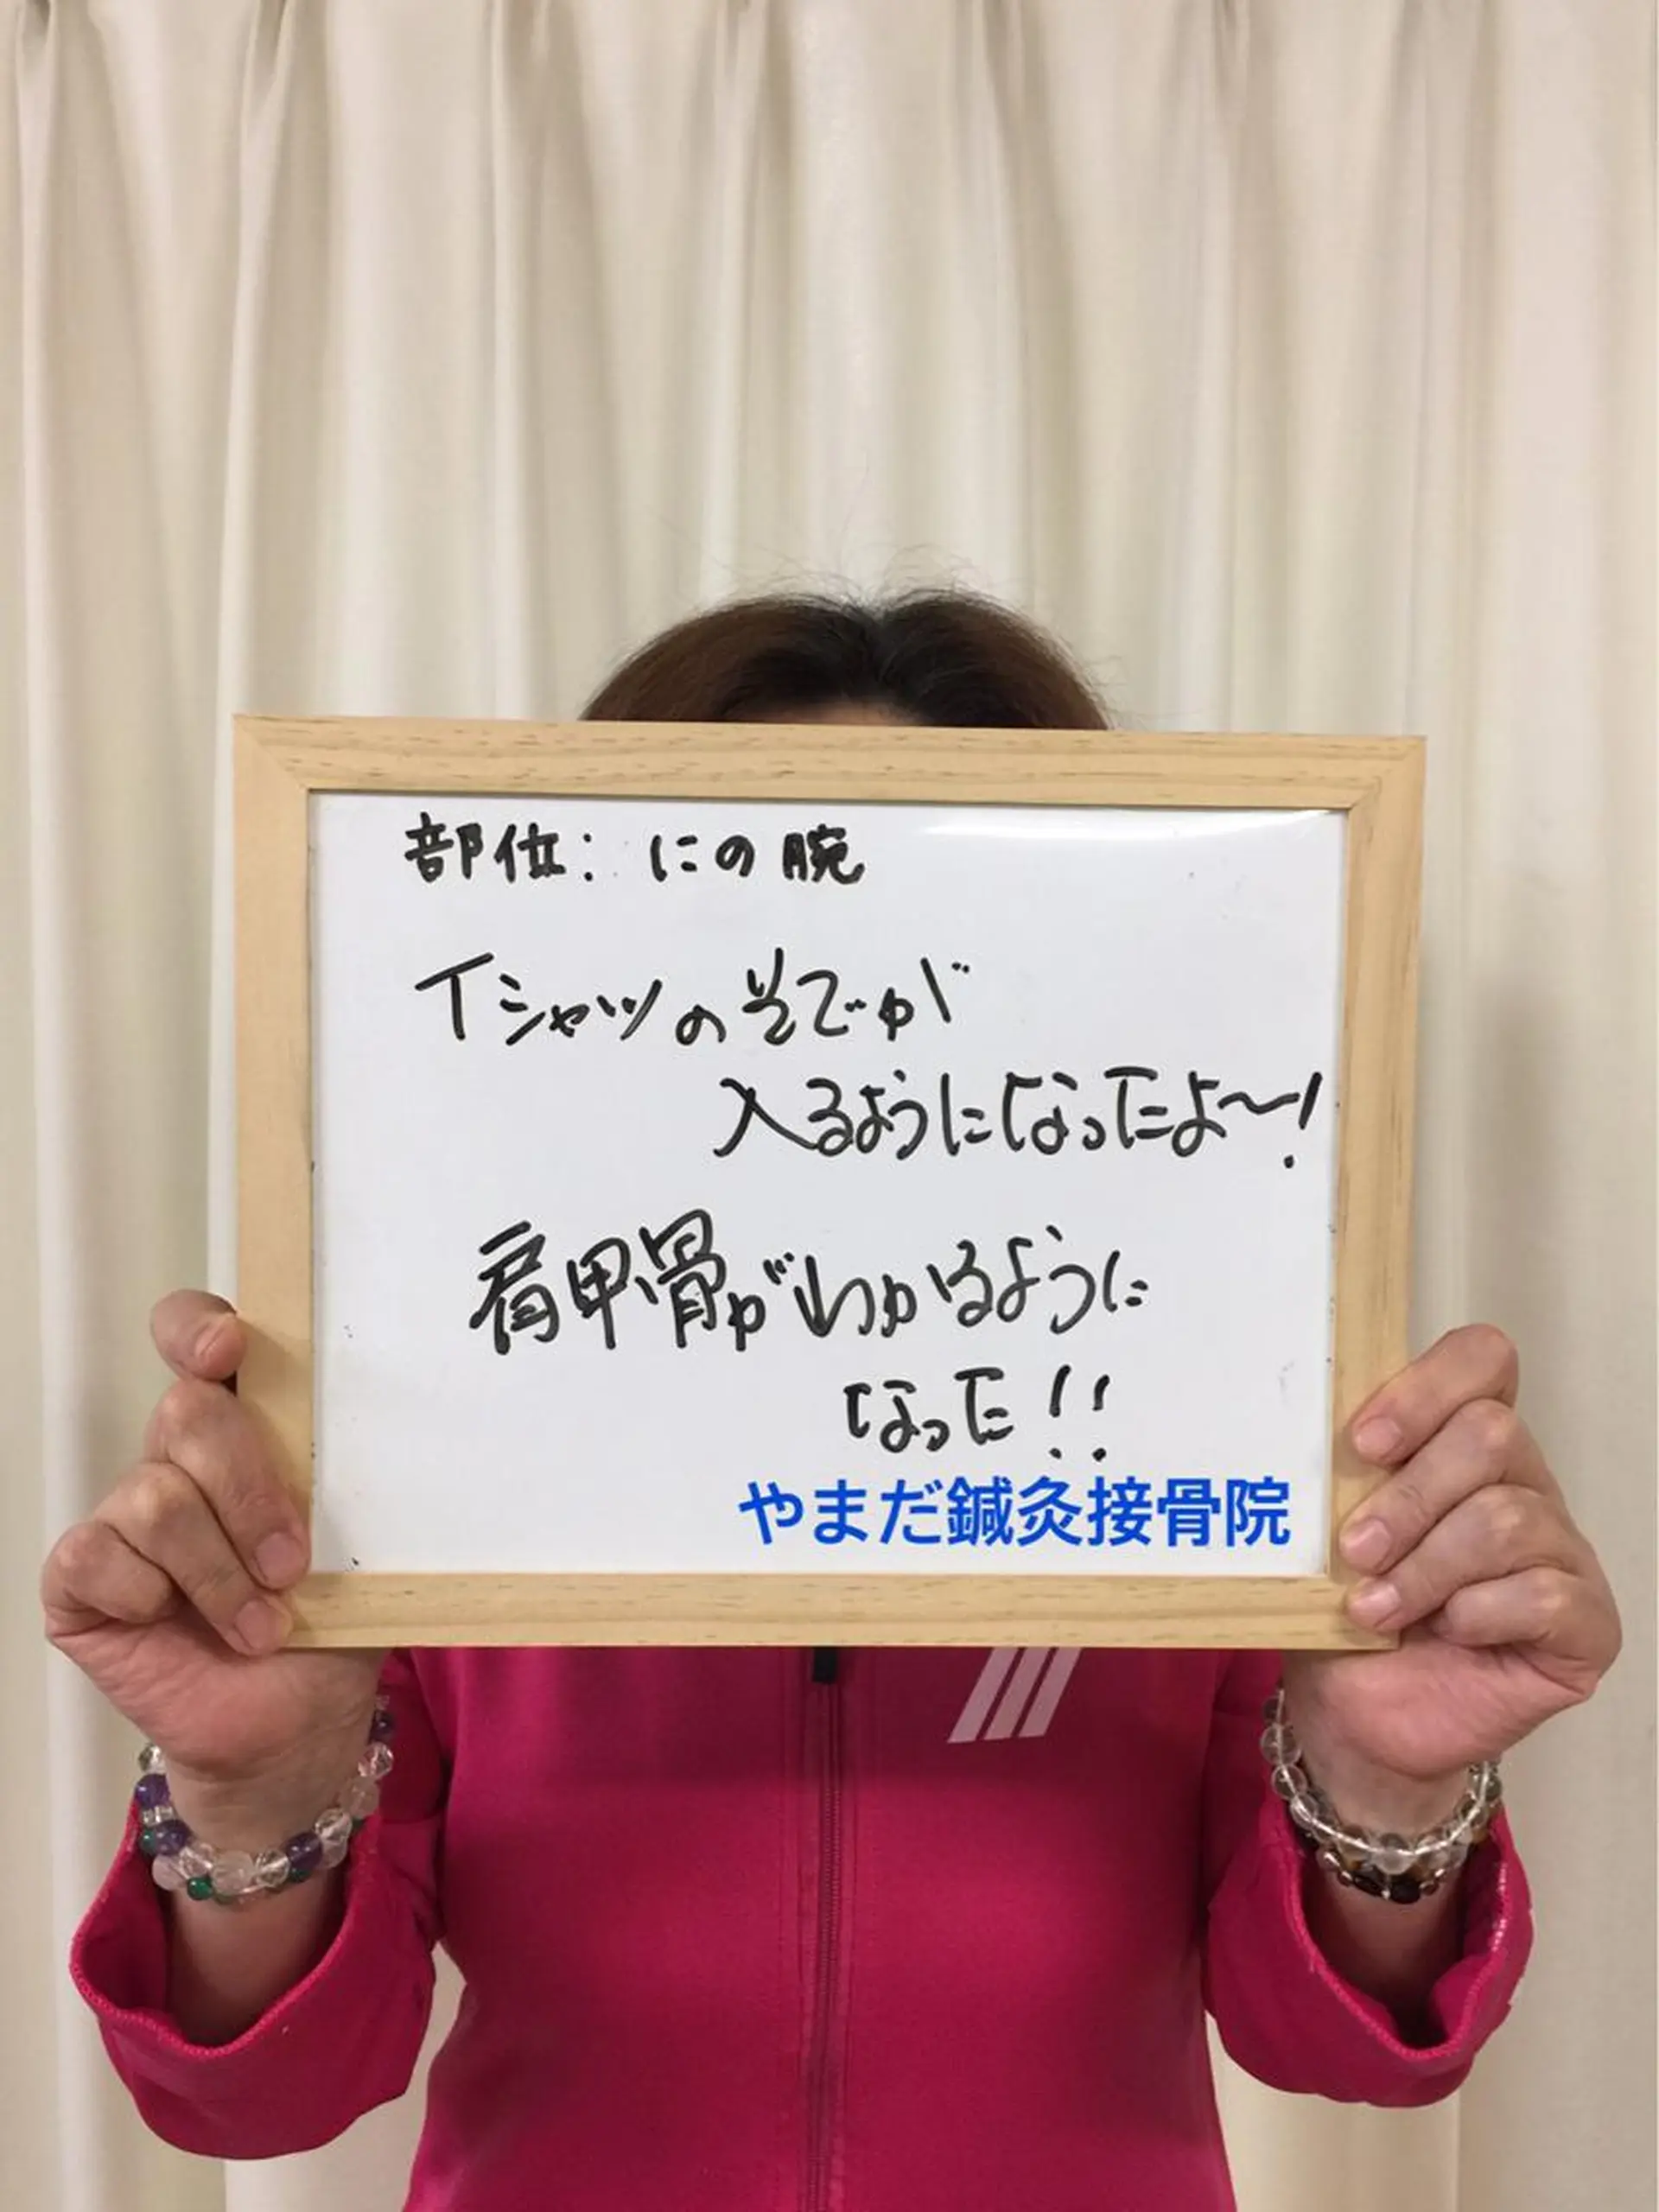 部位: にの腕
Tシャツのそでが
入るようになったよ～!
肩甲骨がわかるように
なった!!
やまだ鍼灸接骨院